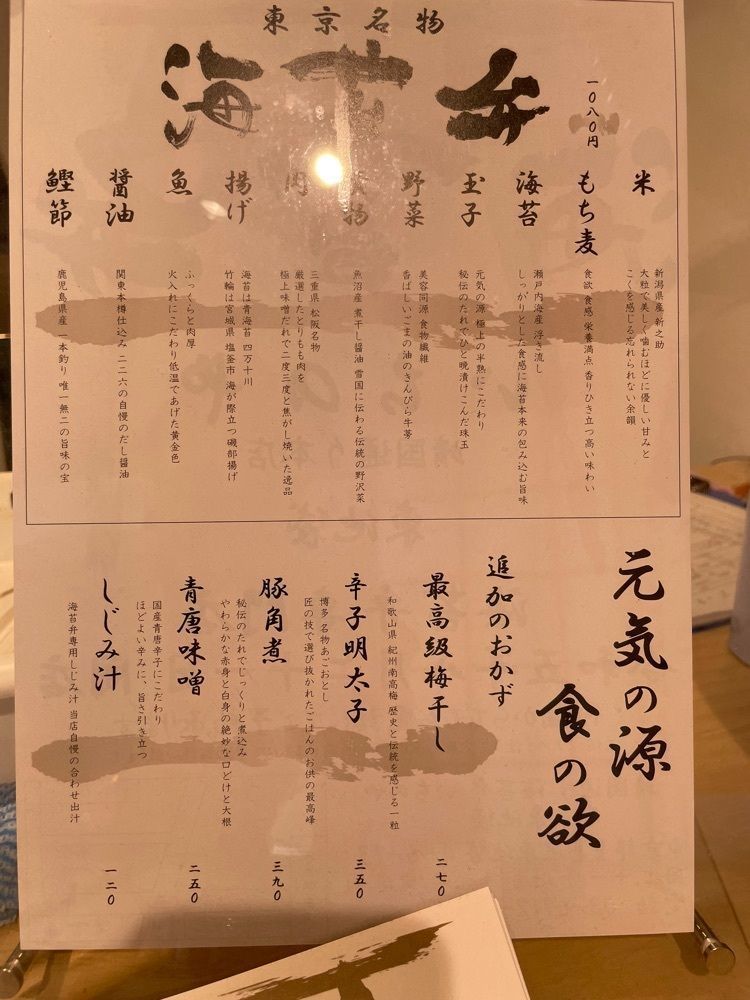 東京名物
海苔弁
一〇八〇円
米
新潟県産 新之助
大粒で美しく噛むほどに優しい甘みと
こくを感じる忘れられない余韻
もち麦
食欲 食感 栄養満点 香りひき立つ高い味わい
海苔
瀬戸内海産 浮き流し
しっかりとした食感に海苔本来の包み込む旨味
玉子
元気の源 極上の半熟にこだわり
秘伝のたれでひと晩漬けこんだ珠玉
野菜
美容同源 食物繊維
香ばしいごまの油のきんぴら牛蒡
漬物
魚沼産 煮干し醤油 雪国に伝わる伝統の野沢菜
肉
三重県 松阪名物
厳選したとりもも肉を
極上味噌だれで二度三度と焦がし焼いた逸品
揚げ
海苔は青海苔 四万十川
竹輪は宮城県 塩釜市 海が際立つ磯部揚げ
魚
ふっくらと肉厚
火入れにこだわり低温であげた黄金色
醤油
関東本樽仕込み 二二六の自慢のだし醤油
鰹節
鹿児島県産 一本釣り 唯一無二の旨味の宝
元気の源
食の欲
追加のおかず
最高級梅干し
和歌山県 紀州南高梅 歴史と伝統を感じる一粒
二七〇
辛子明太子
博多 名物あごおとし
匠の技で選び抜かれたごはんのお供の最高峰
三五〇
豚角煮
秘伝のたれでじっくりと煮込み
やわらかな赤身と白身の絶妙な口どけと大根
三九〇
青唐味噌
国産青唐辛子にこだわり
ほどよい辛みに、旨さ引き立つ
二五〇
しじみ汁
海苔弁専用しじみ汁 当店自慢の合わせ出汁
一二〇